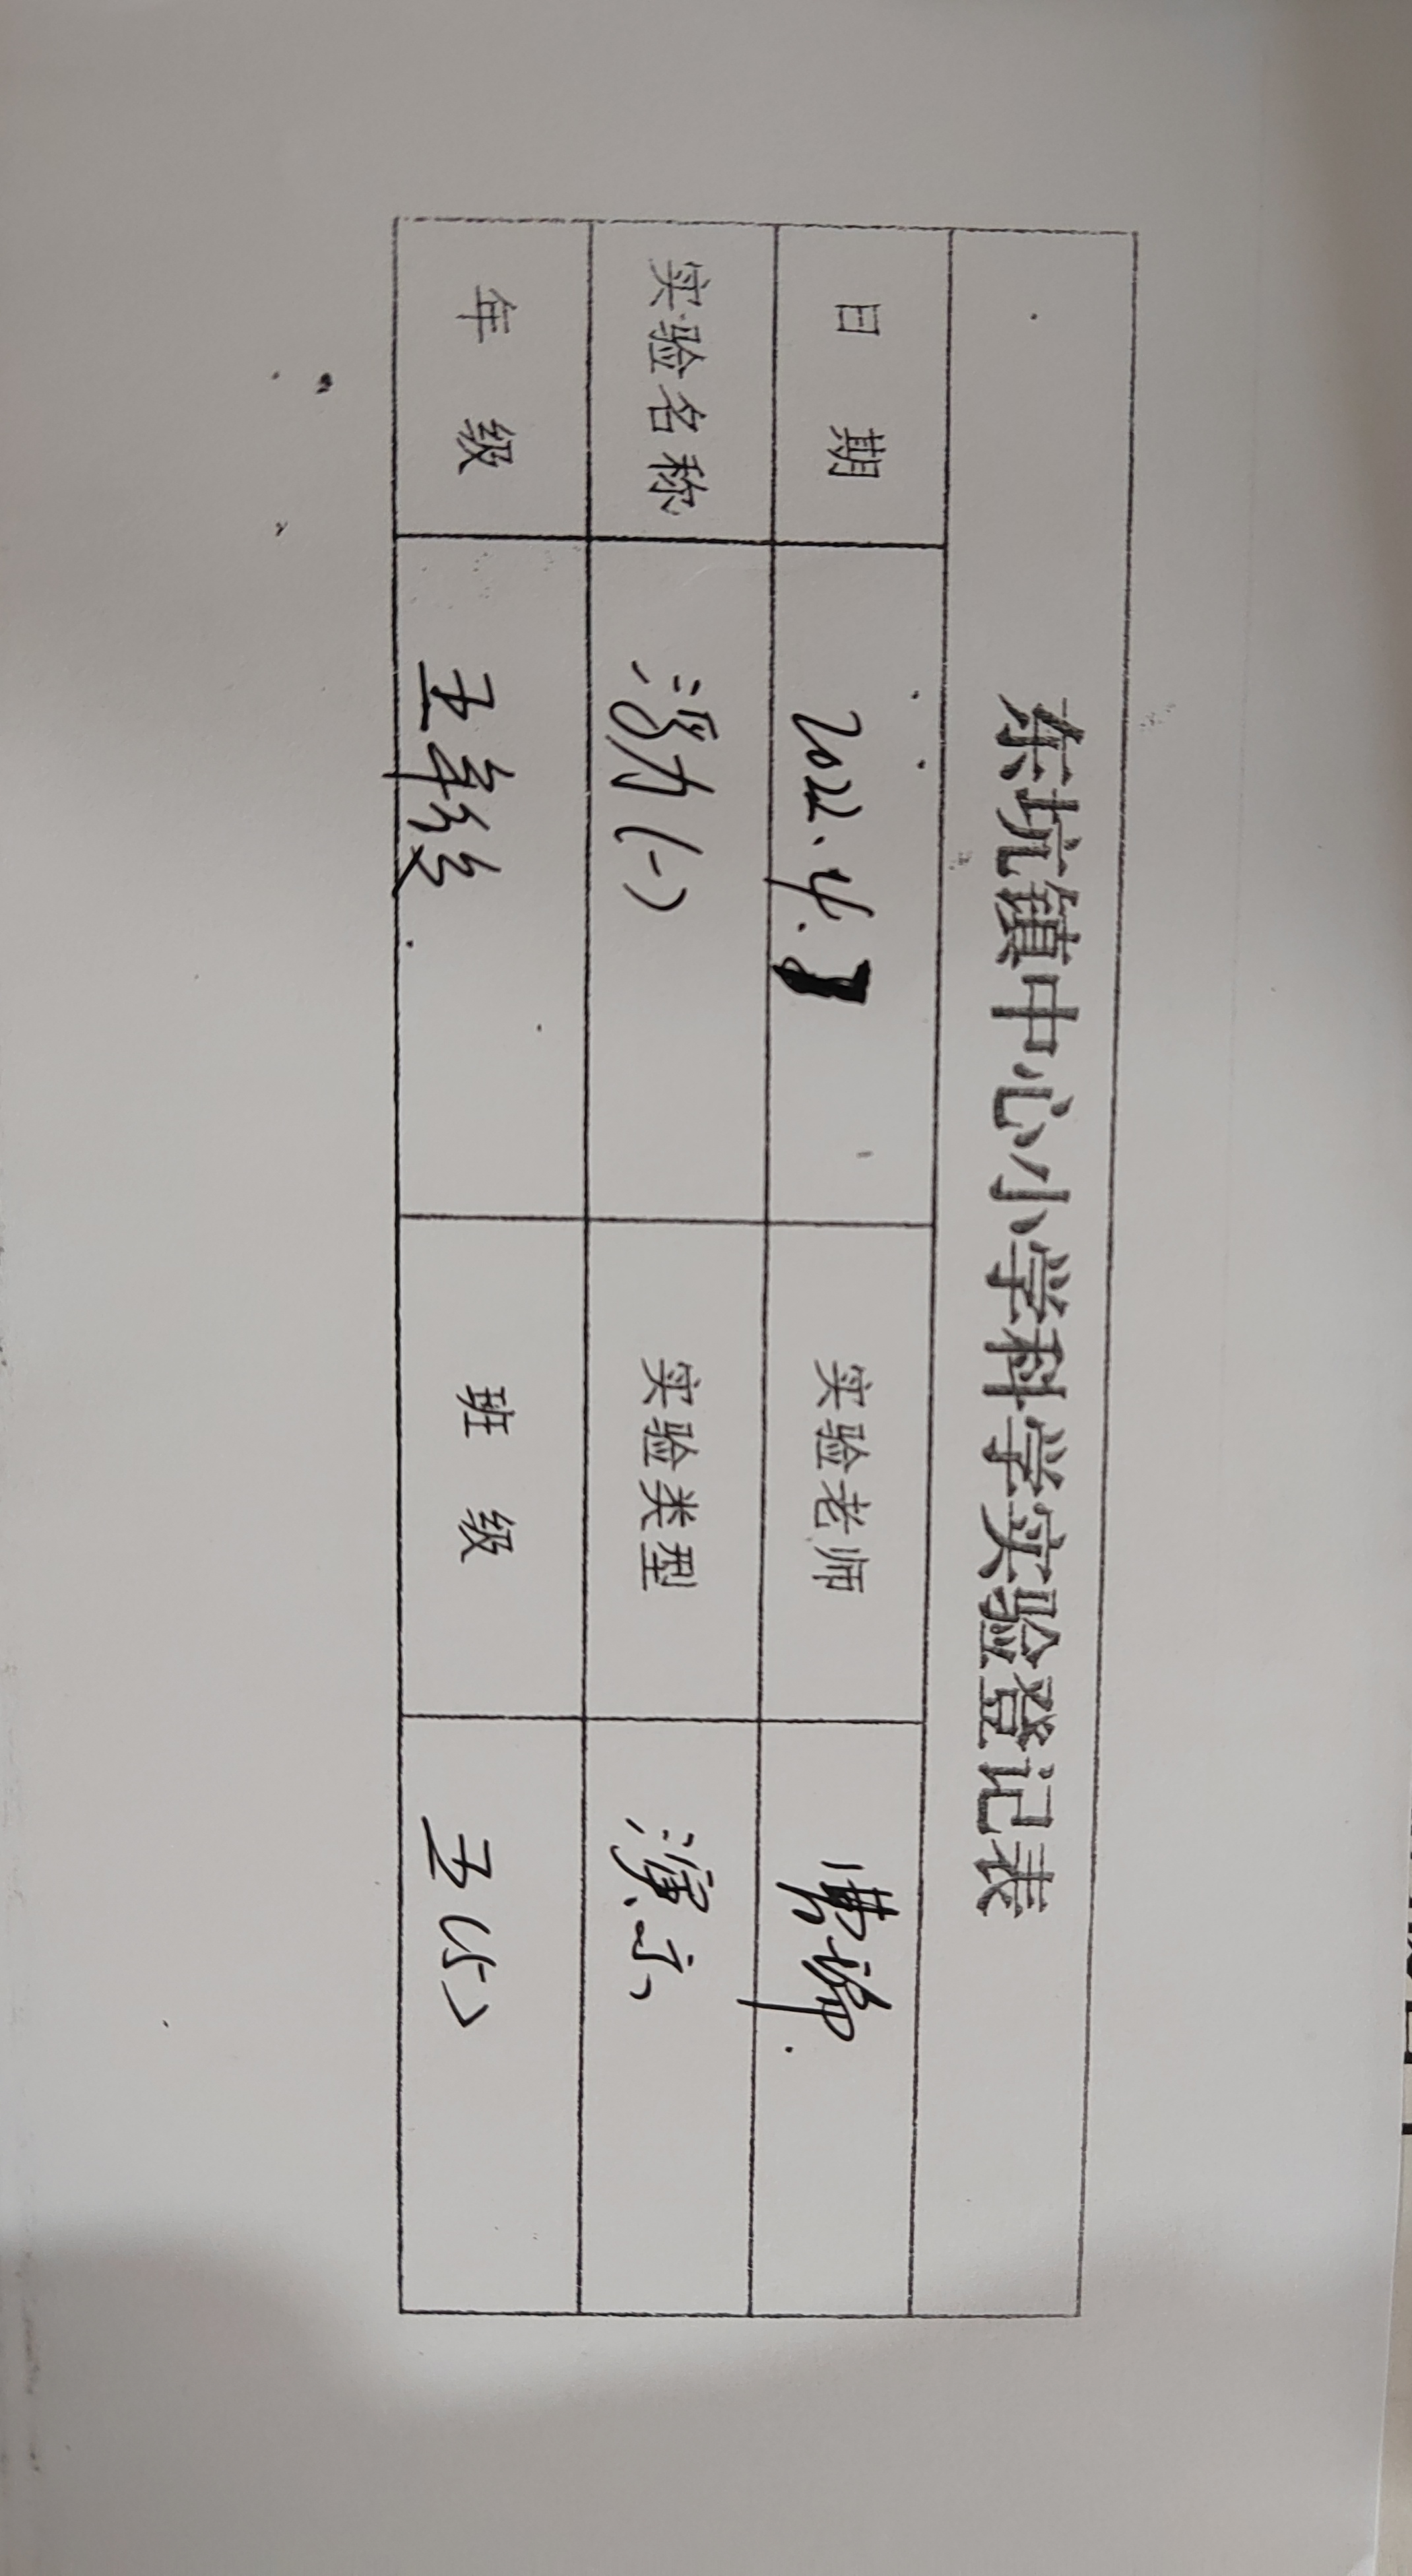 东坑镇中心小学科学实验登记表
日 期 2022.4. 实验老师
实验名称 浮力(一) 实验类型 演示
年 级 五年级 班 级 五(5)